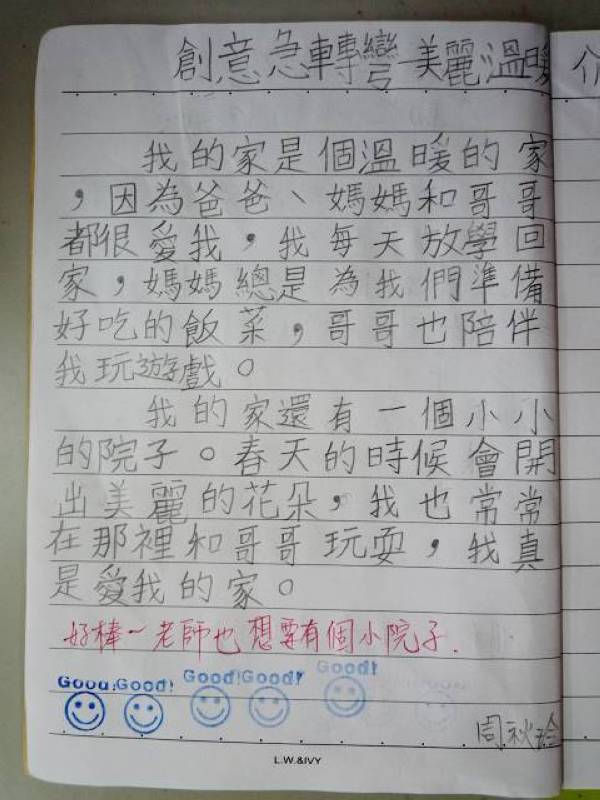 創意急轉彎-美麗溫暖
我的家是個溫暖的家
，因為爸爸、媽媽和哥哥
都很愛我，我每天放學回
家，媽媽總是為我們準備
好吃的飯菜，哥哥也陪伴
我玩遊戲。
我的家還有一個小小
的院子。春天的時候會開
出美麗的花朵，我也常常
在那裡和哥哥玩耍，我真
是愛我的家。
好棒～老師也想要有個小院子.
Good! Good! Good! Good! Good!
周秋玲
L.W.&IVY